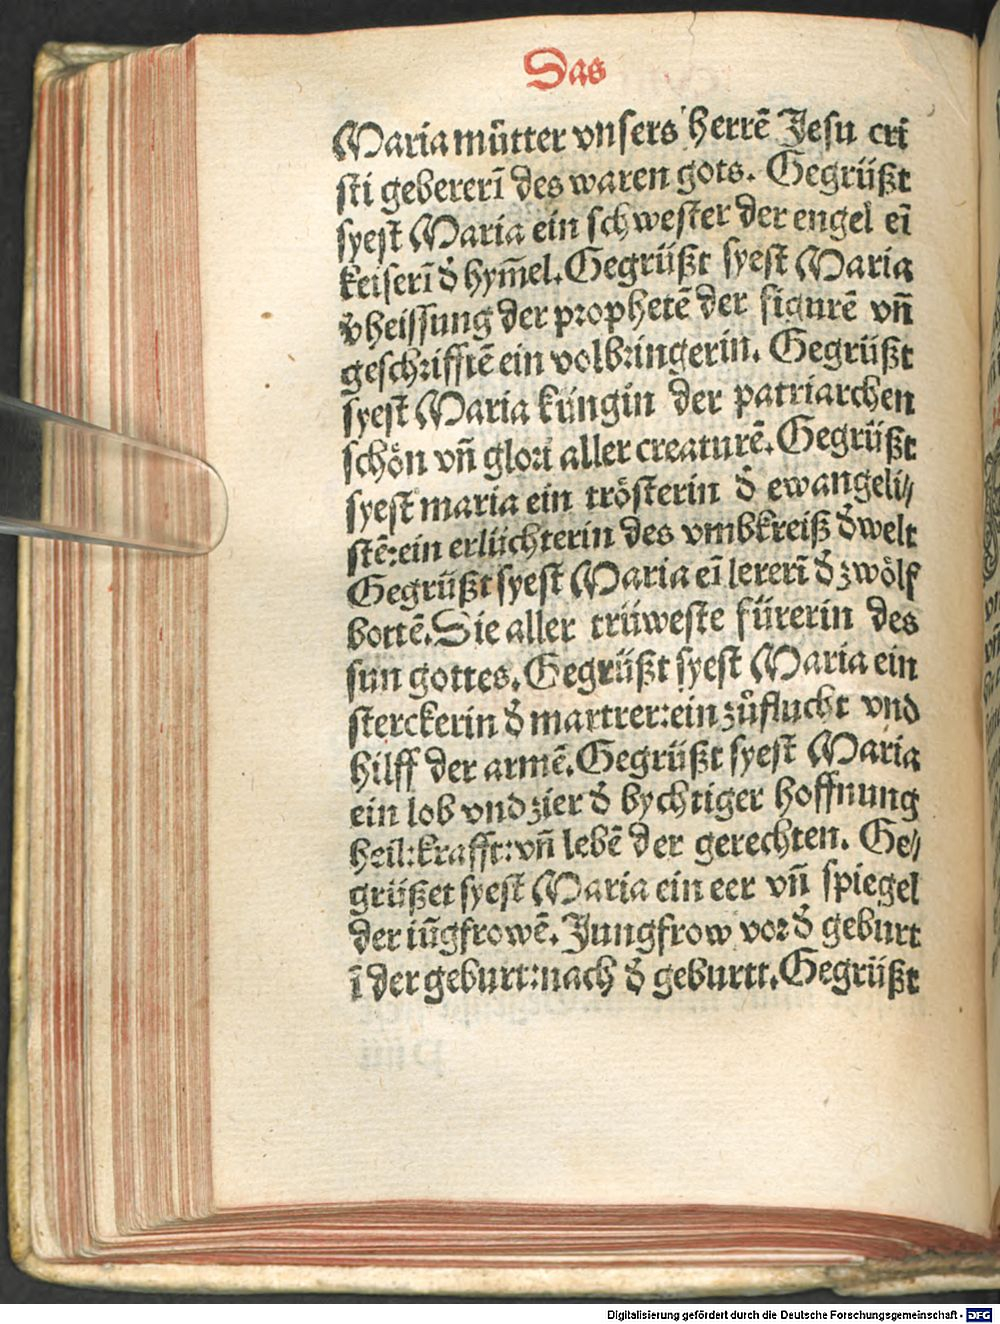 Das
Maria můtter vnsers herrē Jesu cri
sti gebererī des waren gots. Gegrüßt
syest Maria ein schwester der engel eī
keiserī d̕ hym̄el. Gegrüßt syest Maria
v̕heissung der prophetē der figurē vn̄
geschrifftē ein volbringerin. Gegrüßt
syest Maria küngin der patriarchen
schön vn̄ glori aller creaturē. Gegrüßt
syest maria ein trösterin d̕ ewangeli⸗
stē: ein erlüchterin des vmbkreiß d̕ welt
Gegrüßt syest Maria eī lererī d̕ zwölf
bottē. Sie aller trüweste fürerin des
sun gottes. Gegrüßt syest Maria ein
sterckerin d̕ martrer: ein zůflucht vnd
hilff der armē. Gegrüßt syest Maria
ein lob vnd zier d̕ bychtiger hoffnung
heil: krafft: vn̄ lebē der gerechten. Ge⸗
grüßet syest Maria ein eer vn̄ spiegel
der iūgfrowē. Jungfrow vor d̕ geburt
ī der geburt: nach d̕ geburtt. Gegrüßt
Digitalisierung gefördert durch die Deutsche Forschungsgemeinschaft - DFG